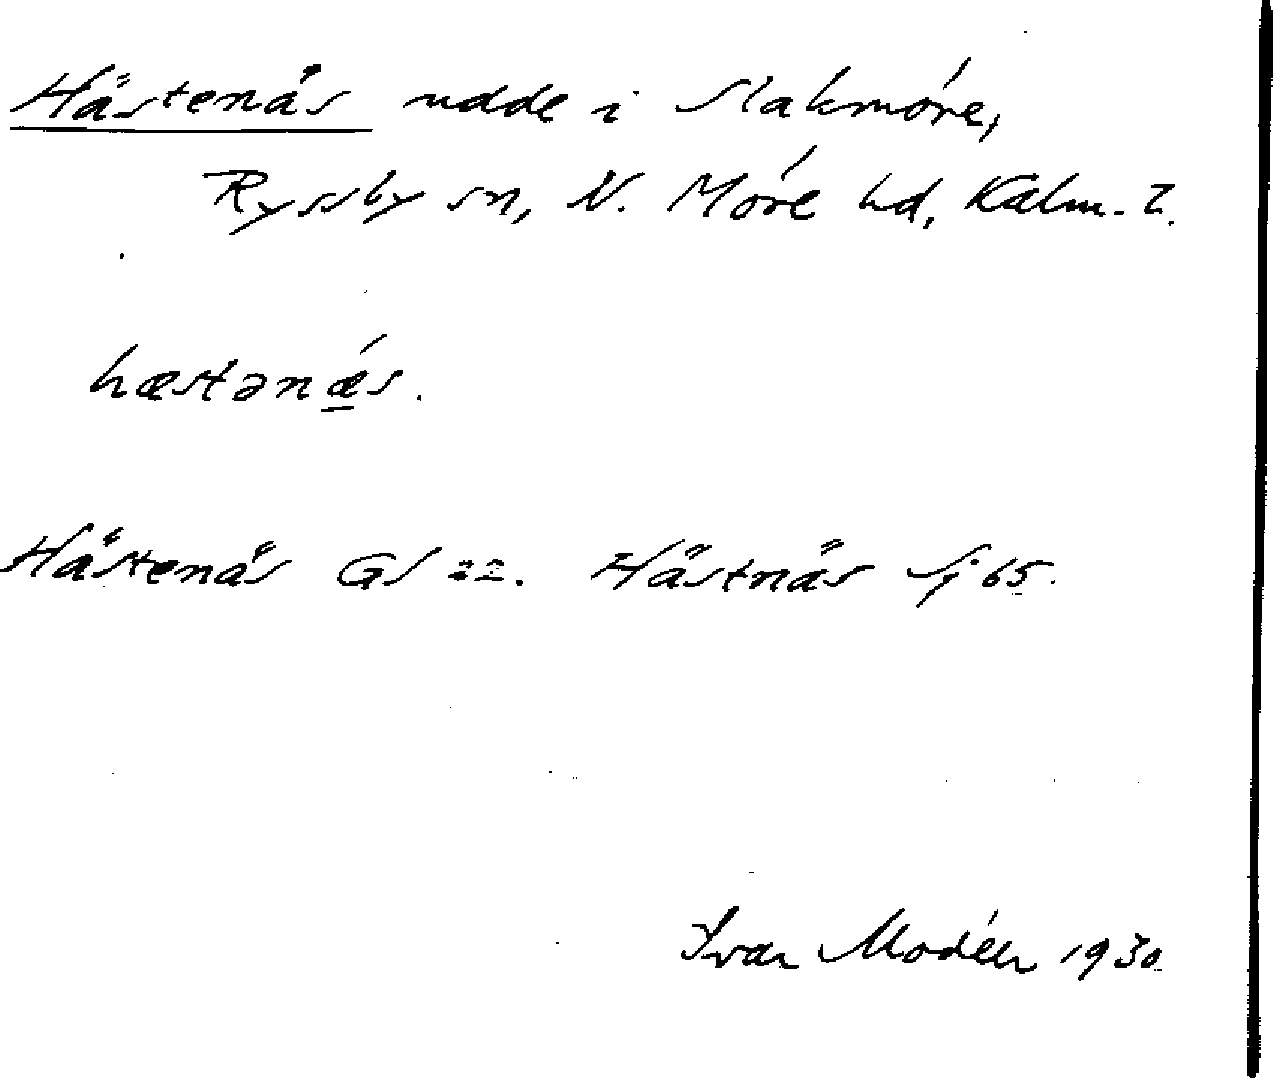 Hästenäs udde i Slakmöre,
Ryssby sn, N. Möre hd, Kalm. l.
hæstənǽs.
Hästenäs GS 22. Hästnäs Sj 65.
Ivar Modéer 1930